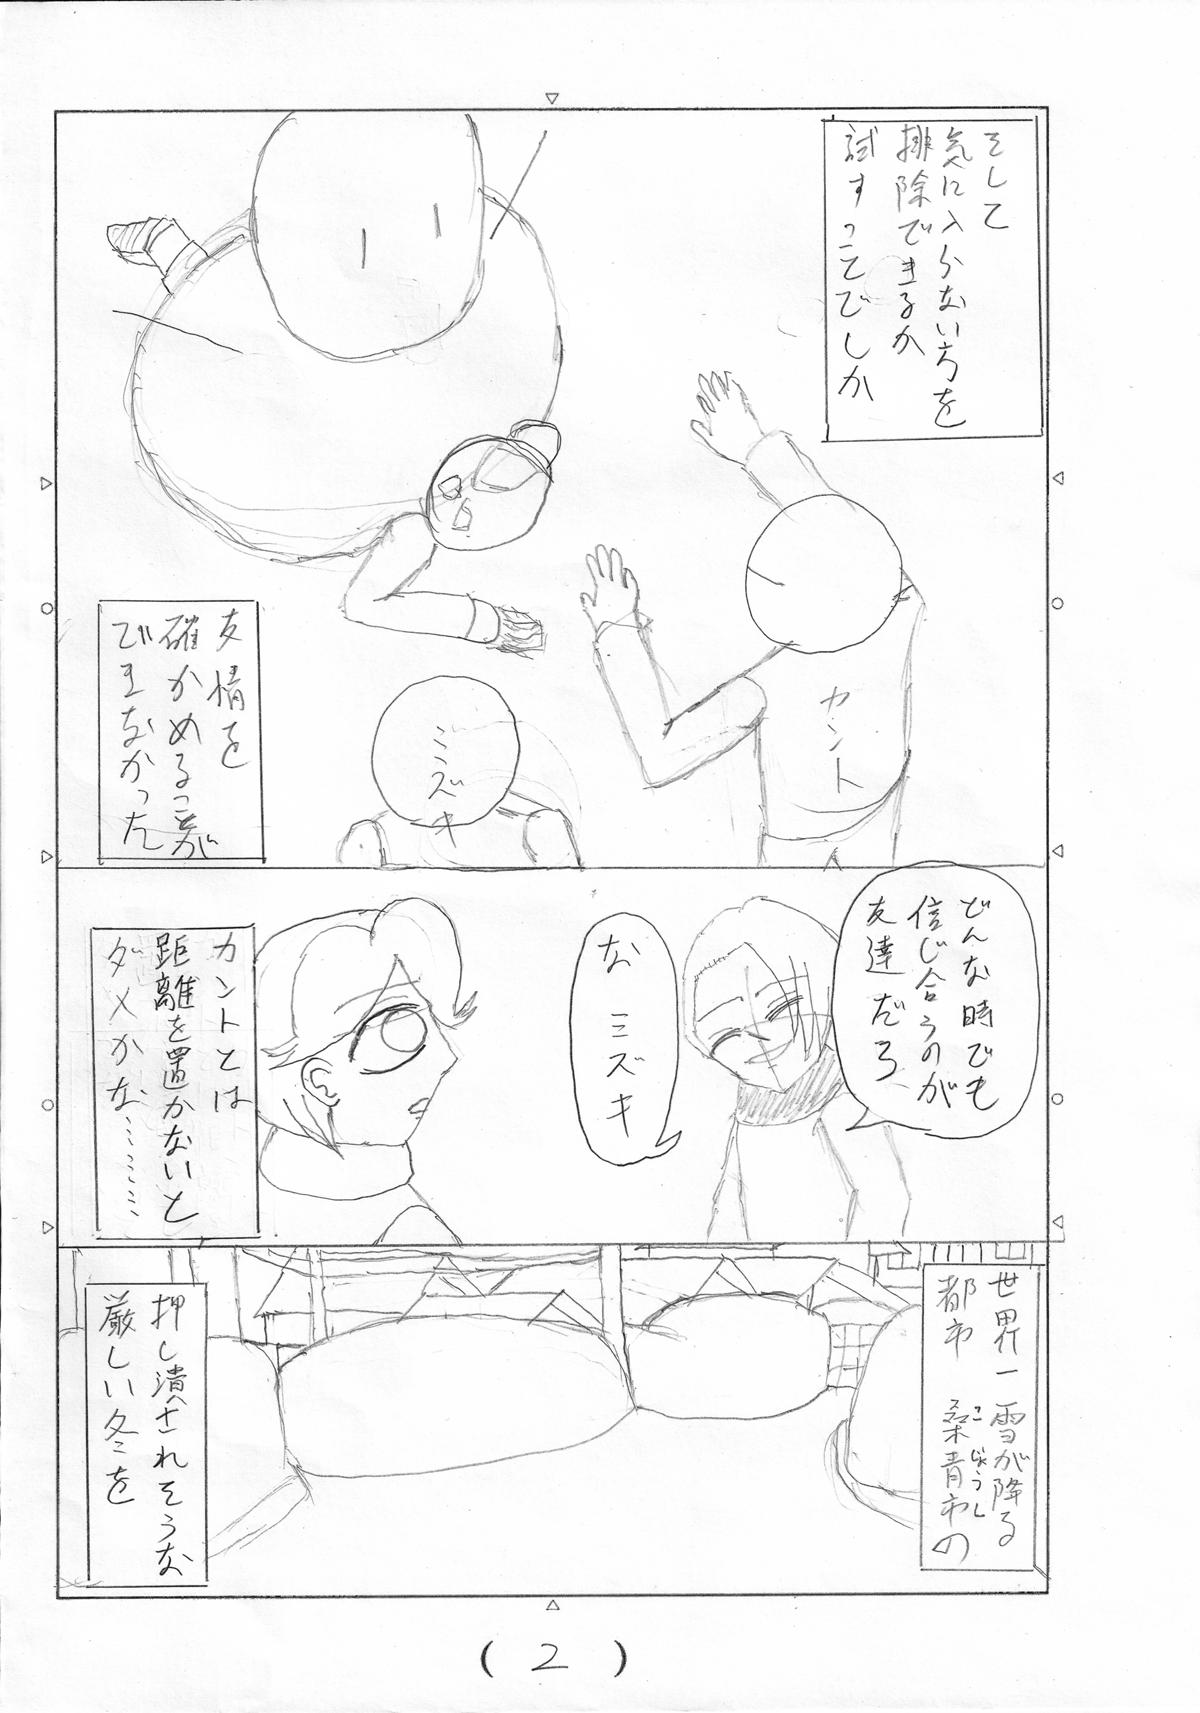 そして
気に入らない方を
排除できるか
試すことでしか
カント
ミズキ
友情を
確かめることが
できなかった
どんな時でも
信じ合うのが
友達だろ
な ミズキ
カントとは
距離を置かないと
ダメかな…………
世界一雪が降る
都市 桑青市の
こじょうし
押し潰されそうな
厳しい冬を
(2)